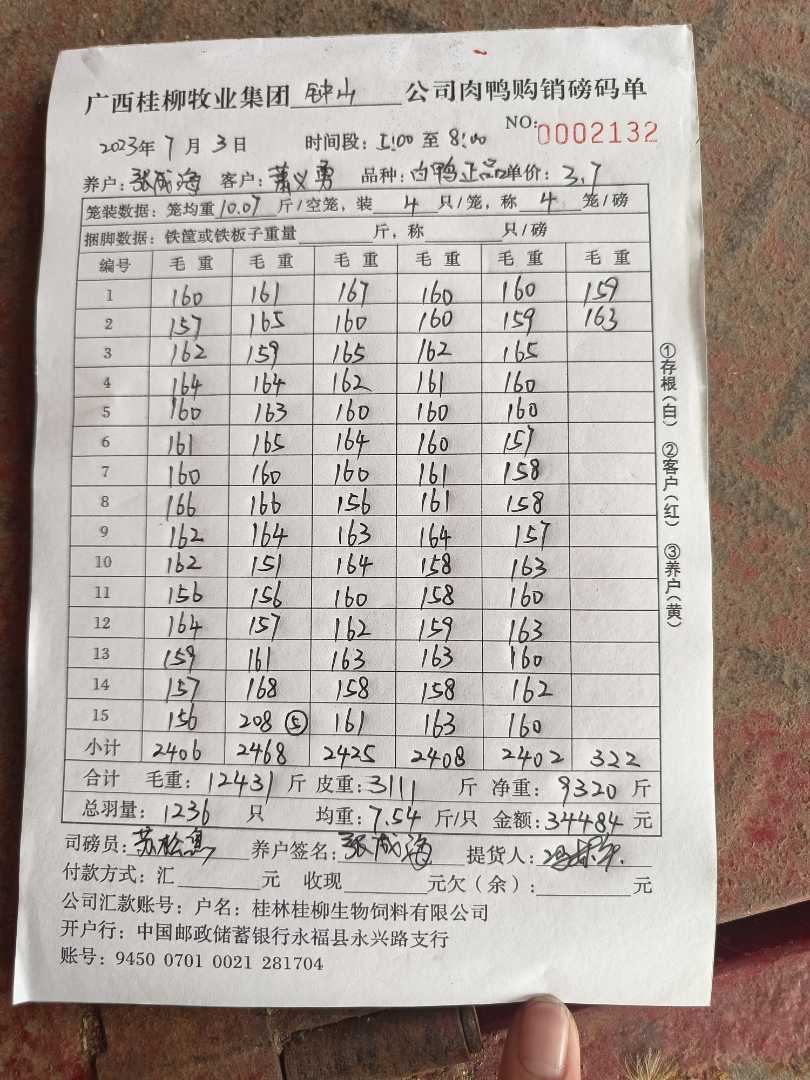 广西桂柳牧业集团 钟山 公司肉鸭购销磅码单
NO:0002132
2023年 7 月 3 日 时间段: 1:00 至 8:00
养户: 张成海 客户: 萧义勇 品种: 白鸭正品 单价: 3.7
笼装数据: 笼均重 10.07 斤/空笼, 装 4 只/笼, 称 4 笼/磅
捆脚数据: 铁筐或铁板子重量 斤, 称 只/磅
编号 毛重 毛重 毛重 毛重 毛重 毛重
1 160 161 167 160 160 159
2 157 165 160 160 159 163
3 162 159 165 162 165
4 164 164 162 161 160
5 160 163 160 160 160
6 161 165 164 160 157
7 160 160 160 161 158
8 166 166 156 161 158
9 162 164 163 164 157
10 162 151 164 158 163
11 156 156 160 158 160
12 164 157 162 159 163
13 159 161 163 163 160
14 157 168 158 158 162
15 156 208 ⑤ 161 163 160
小计 2406 2468 2425 2408 2402 322
合计 毛重: 12431 斤 皮重: 3111 斤 净重: 9320 斤
总羽量: 1236 只 均重: 7.54 斤/只 金额: 34484 元
司磅员: 苏松 养户签名: 张成海 提货人:
付款方式: 汇 元 收现 元欠(余): 元
公司汇款账号: 户名: 桂林桂柳生物饲料有限公司
开户行: 中国邮政储蓄银行永福县永兴路支行
账号: 9450 0701 0021 281704
①存根(白) ②客户(红) ③养户(黄)